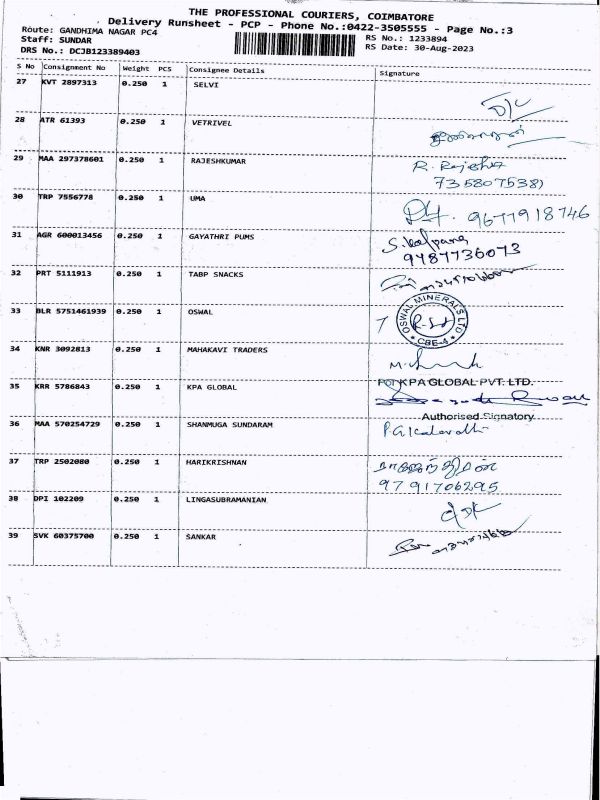 THE PROFESSIONAL COURIERS, COIMBATORE
Delivery Runsheet - PCP - Phone No.:0422-3505555 - Page No.:3
Route: GANDHIMA NAGAR PC4 RS No.: 1233894
Staff: SUNDAR RS Date: 30-Aug-2023
DRS No.: DCJB123389403
S No Consignment No Weight PCS Consignee Details Signature
27 KVT 2897313 0.250 1 SELVI
28 ATR 61393 0.250 1 VETRIVEL
29 MAA 297378601 0.250 1 RAJESHKUMAR R. Rajesh
7358075381
30 TRP 7556778 0.250 1 UMA 9677918746
31 AGR 600013456 0.250 1 GAYATHRI PUMS S. Kalpana
9787736073
32 PRT 5111913 0.250 1 TABP SNACKS
33 BLR 5751461939 0.250 1 OSWAL OSWAL MINERALS LTD CBE-4
34 KNR 3092813 0.250 1 MAHAKAVI TRADERS
35 KRR 5786843 0.250 1 KPA GLOBAL For KPA GLOBAL PVT. LTD.
Authorised Signatory
36 MAA 570254729 0.250 1 SHANMUGA SUNDARAM P.G. Kalavathi
37 TRP 2502080 0.250 1 HARIKRISHNAN
9791706295
38 DPI 102209 0.250 1 LINGASUBRAMANIAN
39 SVK 60375700 0.250 1 SANKAR